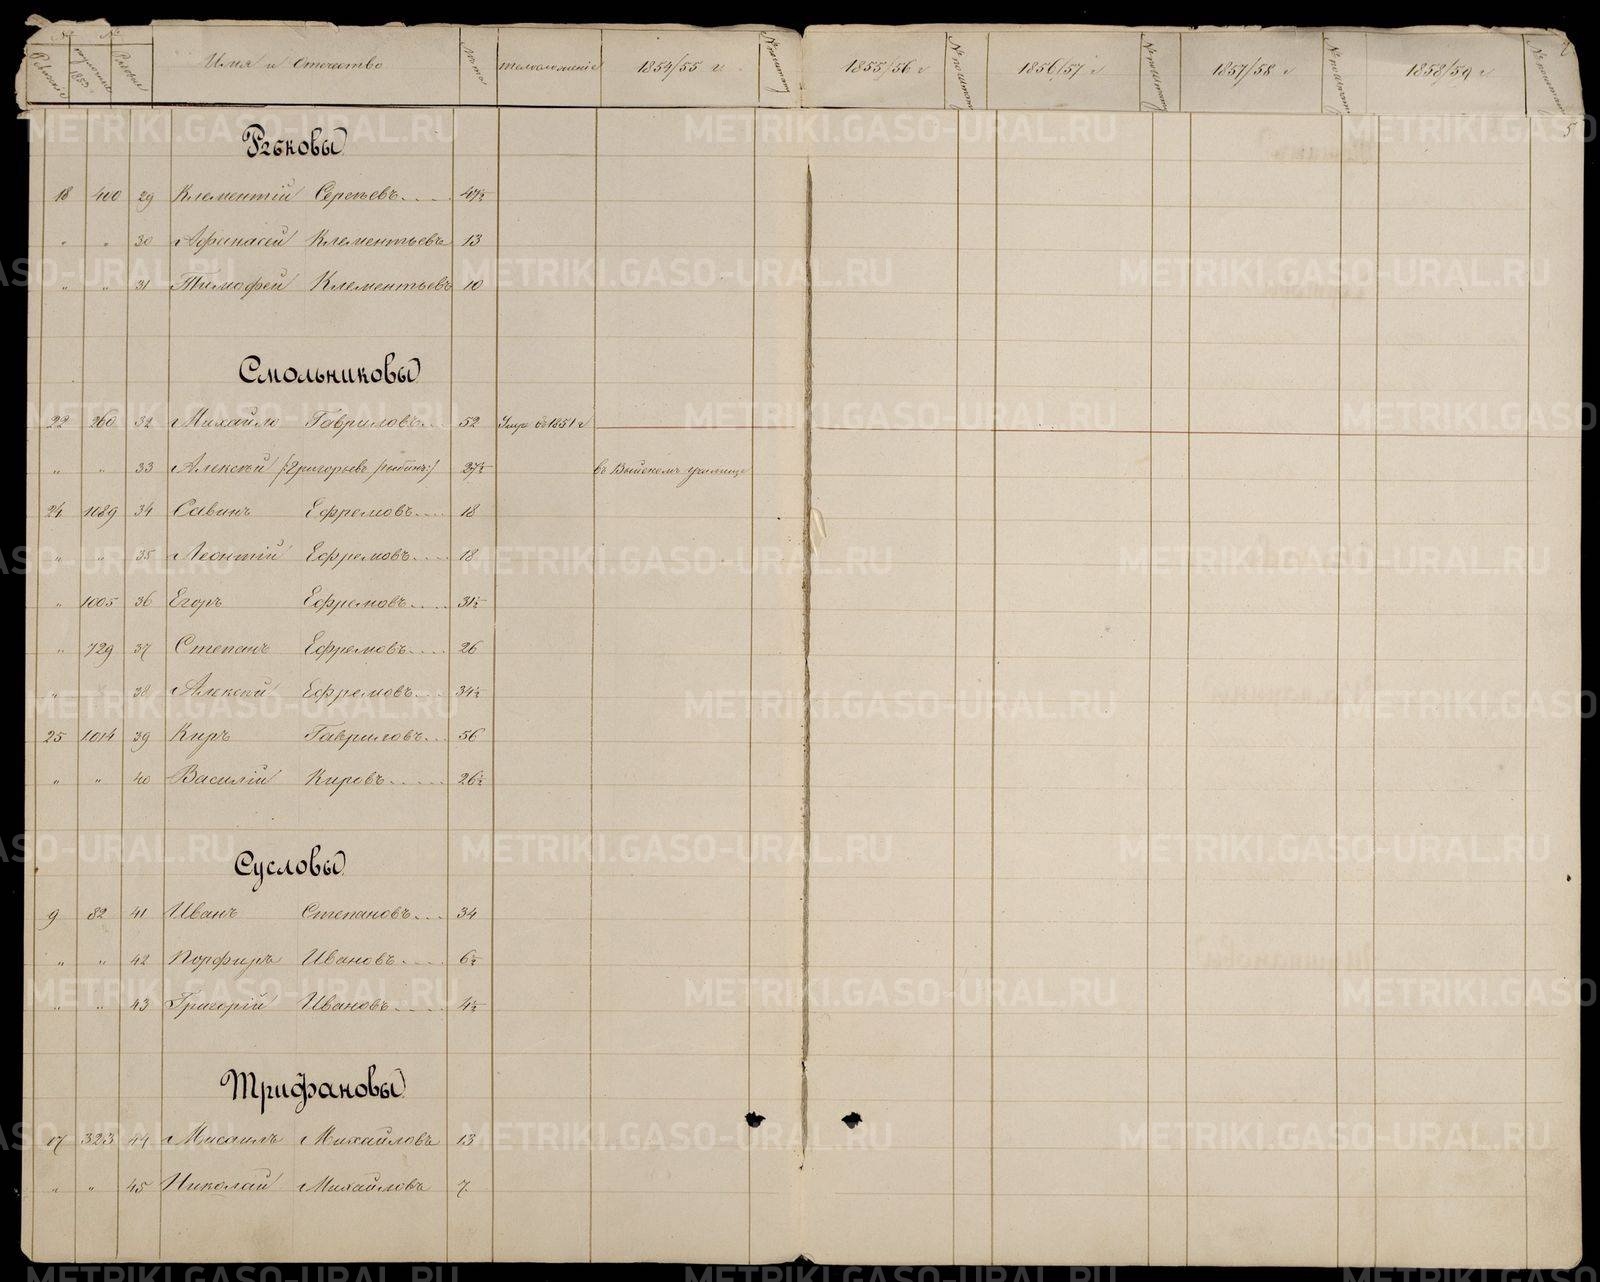 № № Имя и Отчество Лѣта телосложеніе 1854/55 г 1855/56 г 1856/57 г 1857/58 г 1858/59 г
Ряковы
18 400 29 Клементій Сергѣевъ 47½
" " 30 Афанасей Клементьевъ 13
" " 31 Тимофей Клементьевъ 10
Смольниковы
22 260 32 Михайло Гавриловъ 52 Умр въ 1851 г
" " 33 Алексѣй /:Григорьевъ :/ 27½ въ Выйскомъ училище
24 1089 34 Савинъ Ефремовъ 18
" " 35 Леонтій Ефремовъ 18
" 1005 36 Егоръ Ефремовъ 31½
" 729 37 Степанъ Ефремовъ 26
" 38 Алексѣй Ефремовъ 34½
25 1014 39 Киръ Гавриловъ 56
" " 40 Василій Кировъ 26½
Сусловы
9 82 41 Иванъ Степановъ 34
" " 42 Порфиръ Ивановъ 6½
" " 43 Григорій Ивановъ 4½
Трифановы
17 323 44 Мисаилъ Михайловъ 13
" " 45 Николай Михайловъ 7
METRIKI.GASO-URAL.RU